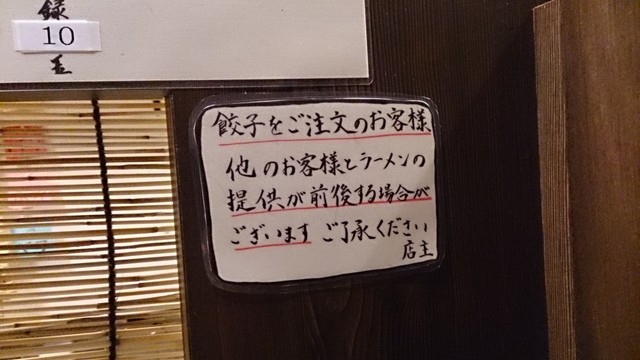 録
10
玉
餃子をご注文のお客様
他のお客様とラーメンの
提供が前後する場合が
ございます ご了承ください
店主